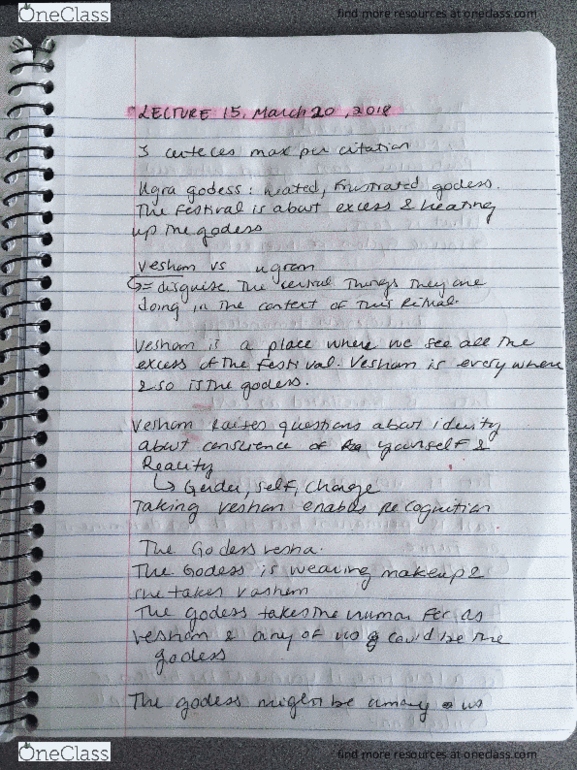 OneClass
find more resources at oneclass.com
LECTURE 15, March 20, 2018
max per citation
Ugra godess: heated, frustrated godess.
The festival is about excess & heating
up the godess
Vesham vs ugram
↳= disguise. The several things they are
doing in the context of this ritual.
Vesham is a place where we see all the
excess of the festival. Vesham is everywhere
& so is the godess.
Vesham raises questions about identity
about conscience of yourself &
Reality
↳ Gender, self, change
Taking vesham enables recognition
The Godess vesha.
The Godess is wearing makeup &
she takes vasham
The godess takes the human for as
vesham & any of us could be the
godess
The godess might be among us
OneClass
find more resources at oneclass.com